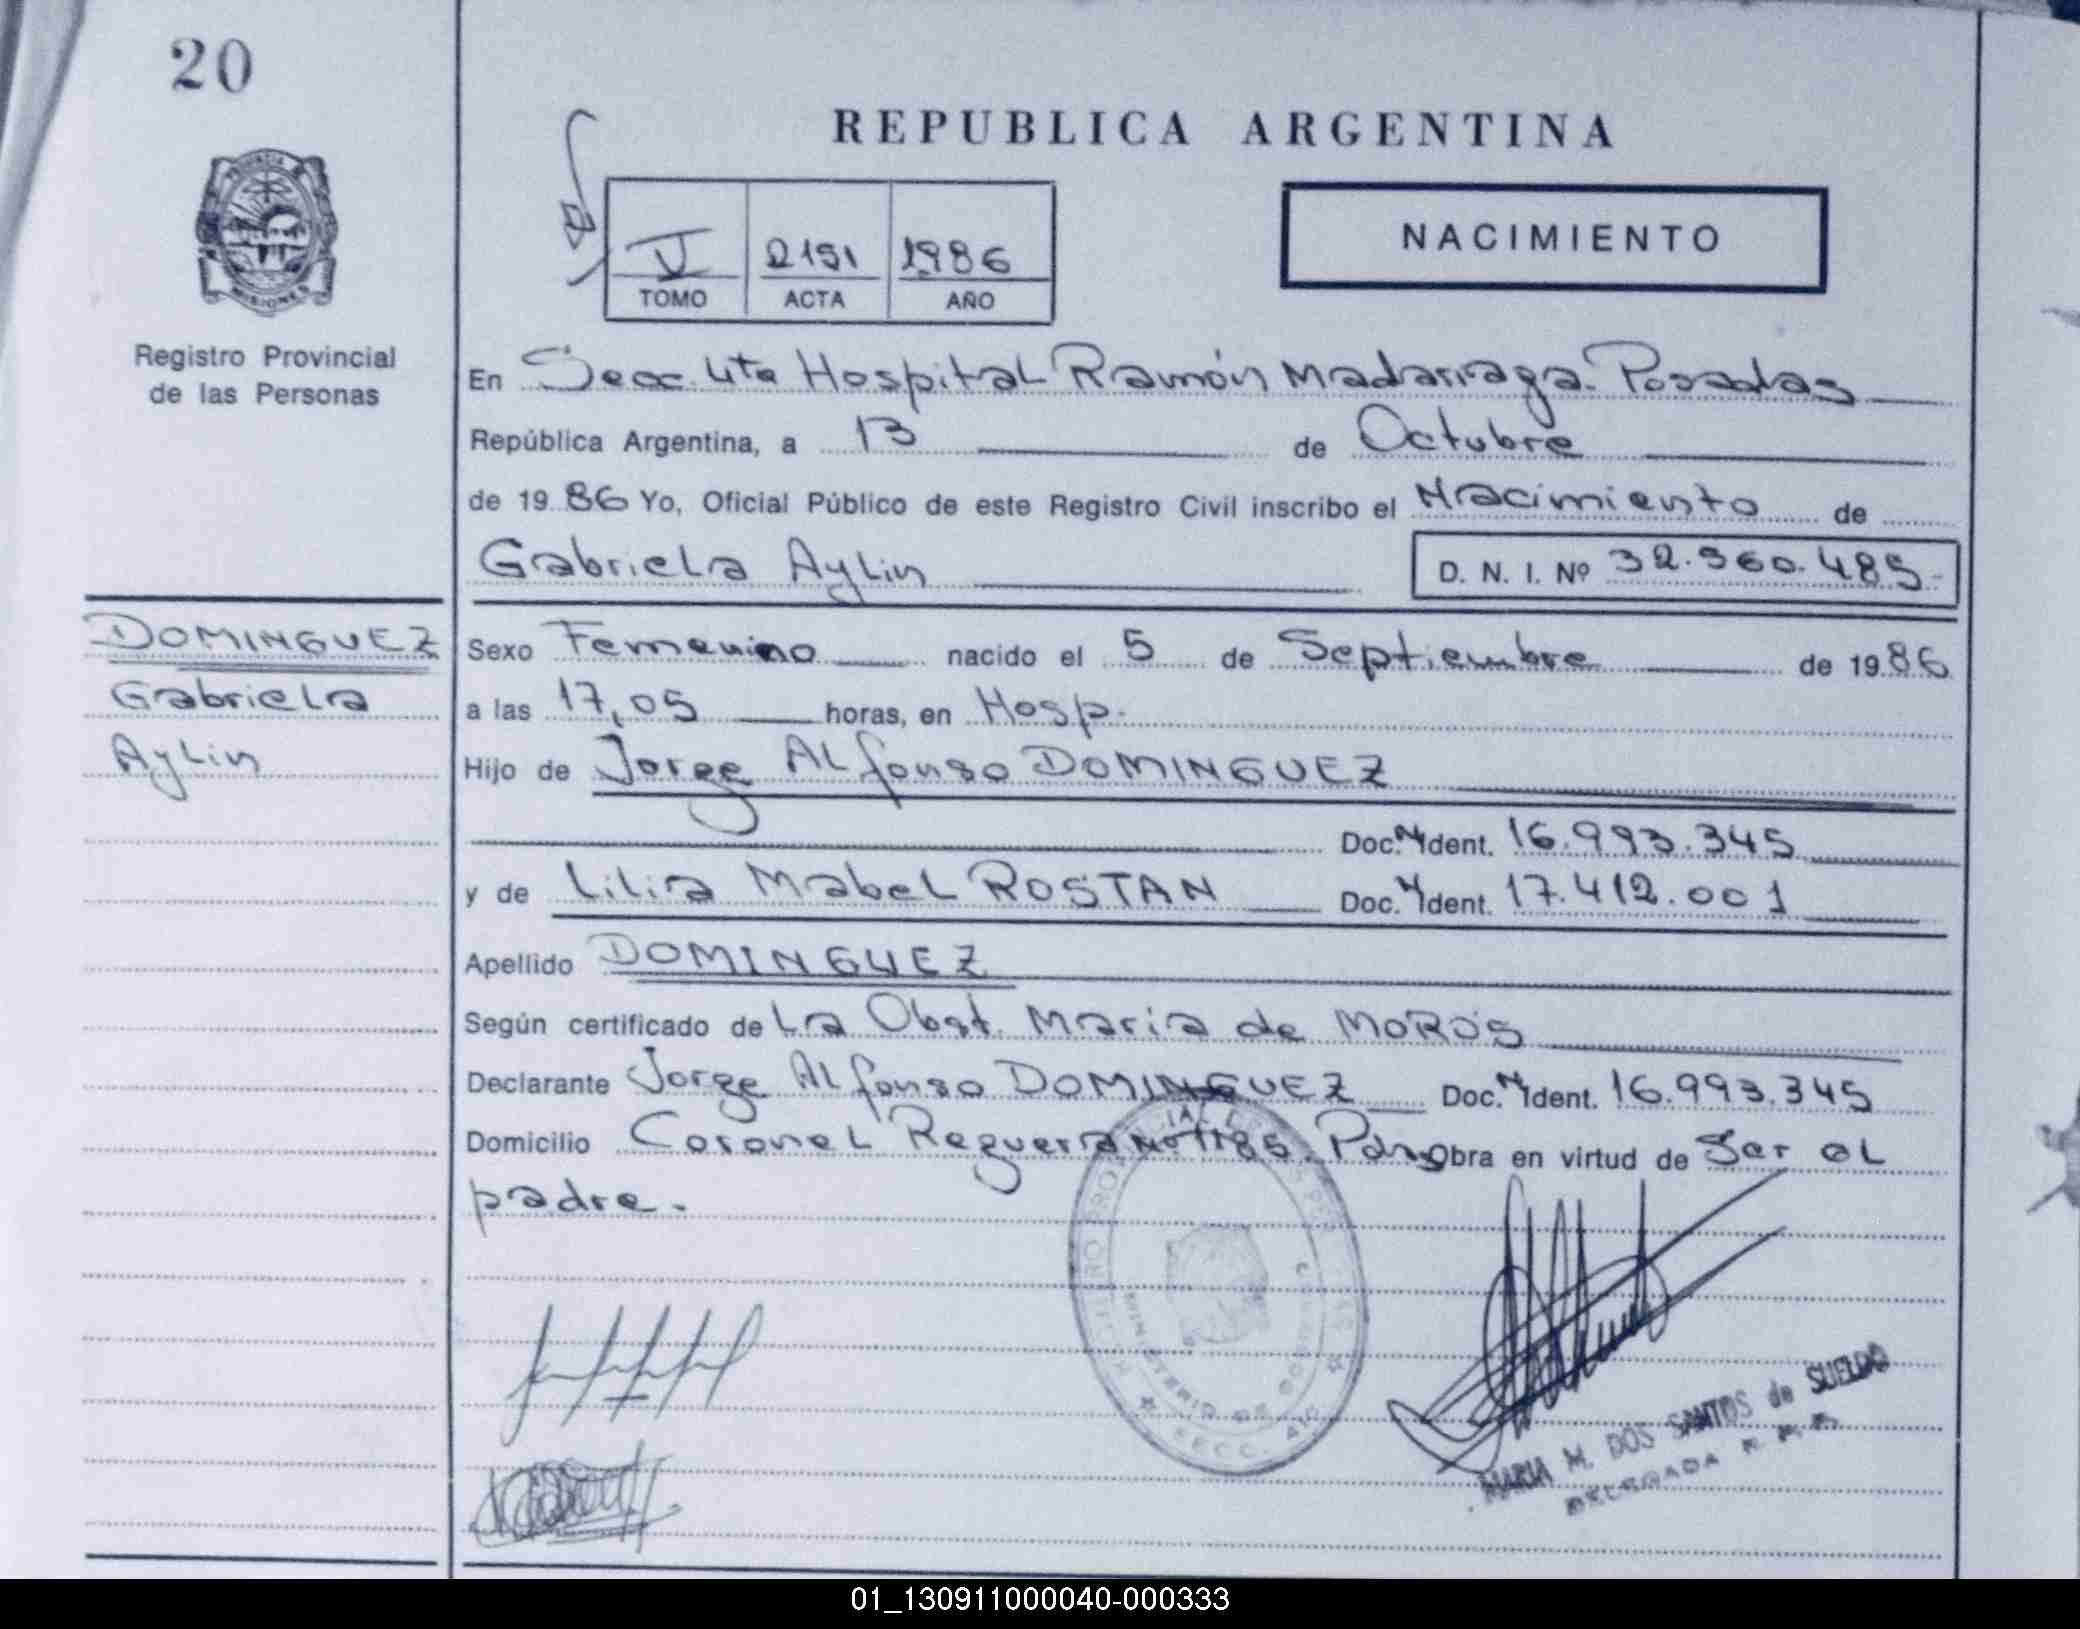 20
REPUBLICA ARGENTINA
NACIMIENTO
V 2191 1986
TOMO ACTA AÑO
MISIONES
Registro Provincial
de las Personas
En Secc. 4ta Hospital Ramón Madariaga. Posadas
República Argentina, a 13 de Octubre
de 1986 Yo, Oficial Público de este Registro Civil inscribo el Nacimiento de
Gabriela Aylin D. N. I. Nº 32.960.485.-
DOMINGUEZ
Gabriela
Aylin
Sexo Femenino nacido el 5 de Septiembre de 1986
a las 17,05 horas, en Hosp.
Hijo de Jorge Alfonso DOMINGUEZ
Doc. N Ident. 16.993.345
y de Lilia Mabel ROSTAN Doc. N Ident. 17.412.001
Apellido DOMINGUEZ
Según certificado de La Obst. Maria de MOROS
Declarante Jorge Alfonso DOMINGUEZ Doc. N Ident. 16.993.345
Domicilio Coronel Reguera Nº 1185. Obra en virtud de Ser el
padre.
MARIA M. DOS SANTOS de SUELDO
DELEGADA
01_130911000040-000333